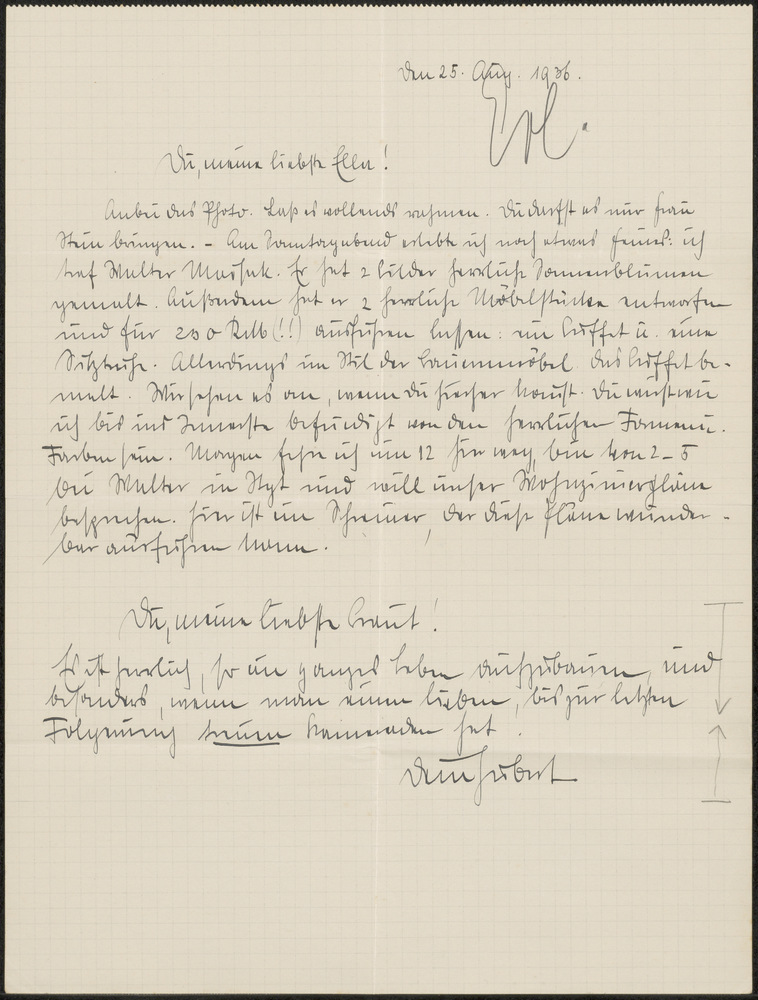 Den 25. Aug. 1936.
Erl.
Du, meine liebste Ella!
Anbei das Photo. Laß es vollends rahmen. Du darfst es nur Frau
Stein bringen. – Am Sonntagabend erlebte ich noch etwas Feines: ich
traf Walter. Er hat 2 Bilder herrliche Sonnenblumen
gemalt. Außerdem hat er 2 herrliche Möbelstücke entworfen
und für 250 RM (!!) ausführen lassen: ein Buffet u. eine
Sitztruhe. Allerdings im Stil der Bauernmöbel das Buffet be-
malt. Wir sehen es an, wenn du hierher kommst. Du wirst wie
ich bis ins Innerste befriedigt von den herrlichen Formen u.
Farben sein. Morgen fahre ich um 12 hier weg, bin von 2–5
bei Walter in Stgt und will unser Wohnzimmerpläne
besprechen. Hier ist ein Schreiner, der diese Pläne wunder-
bar ausführen kann.
Du, meine liebste Braut!
Es ist herrlich, so ein ganzes Leben aufzubauen, und
besonders, wenn man einen lieben, bis zur letzten
Folgerung treuen Kameraden hat.
Dein Hubert